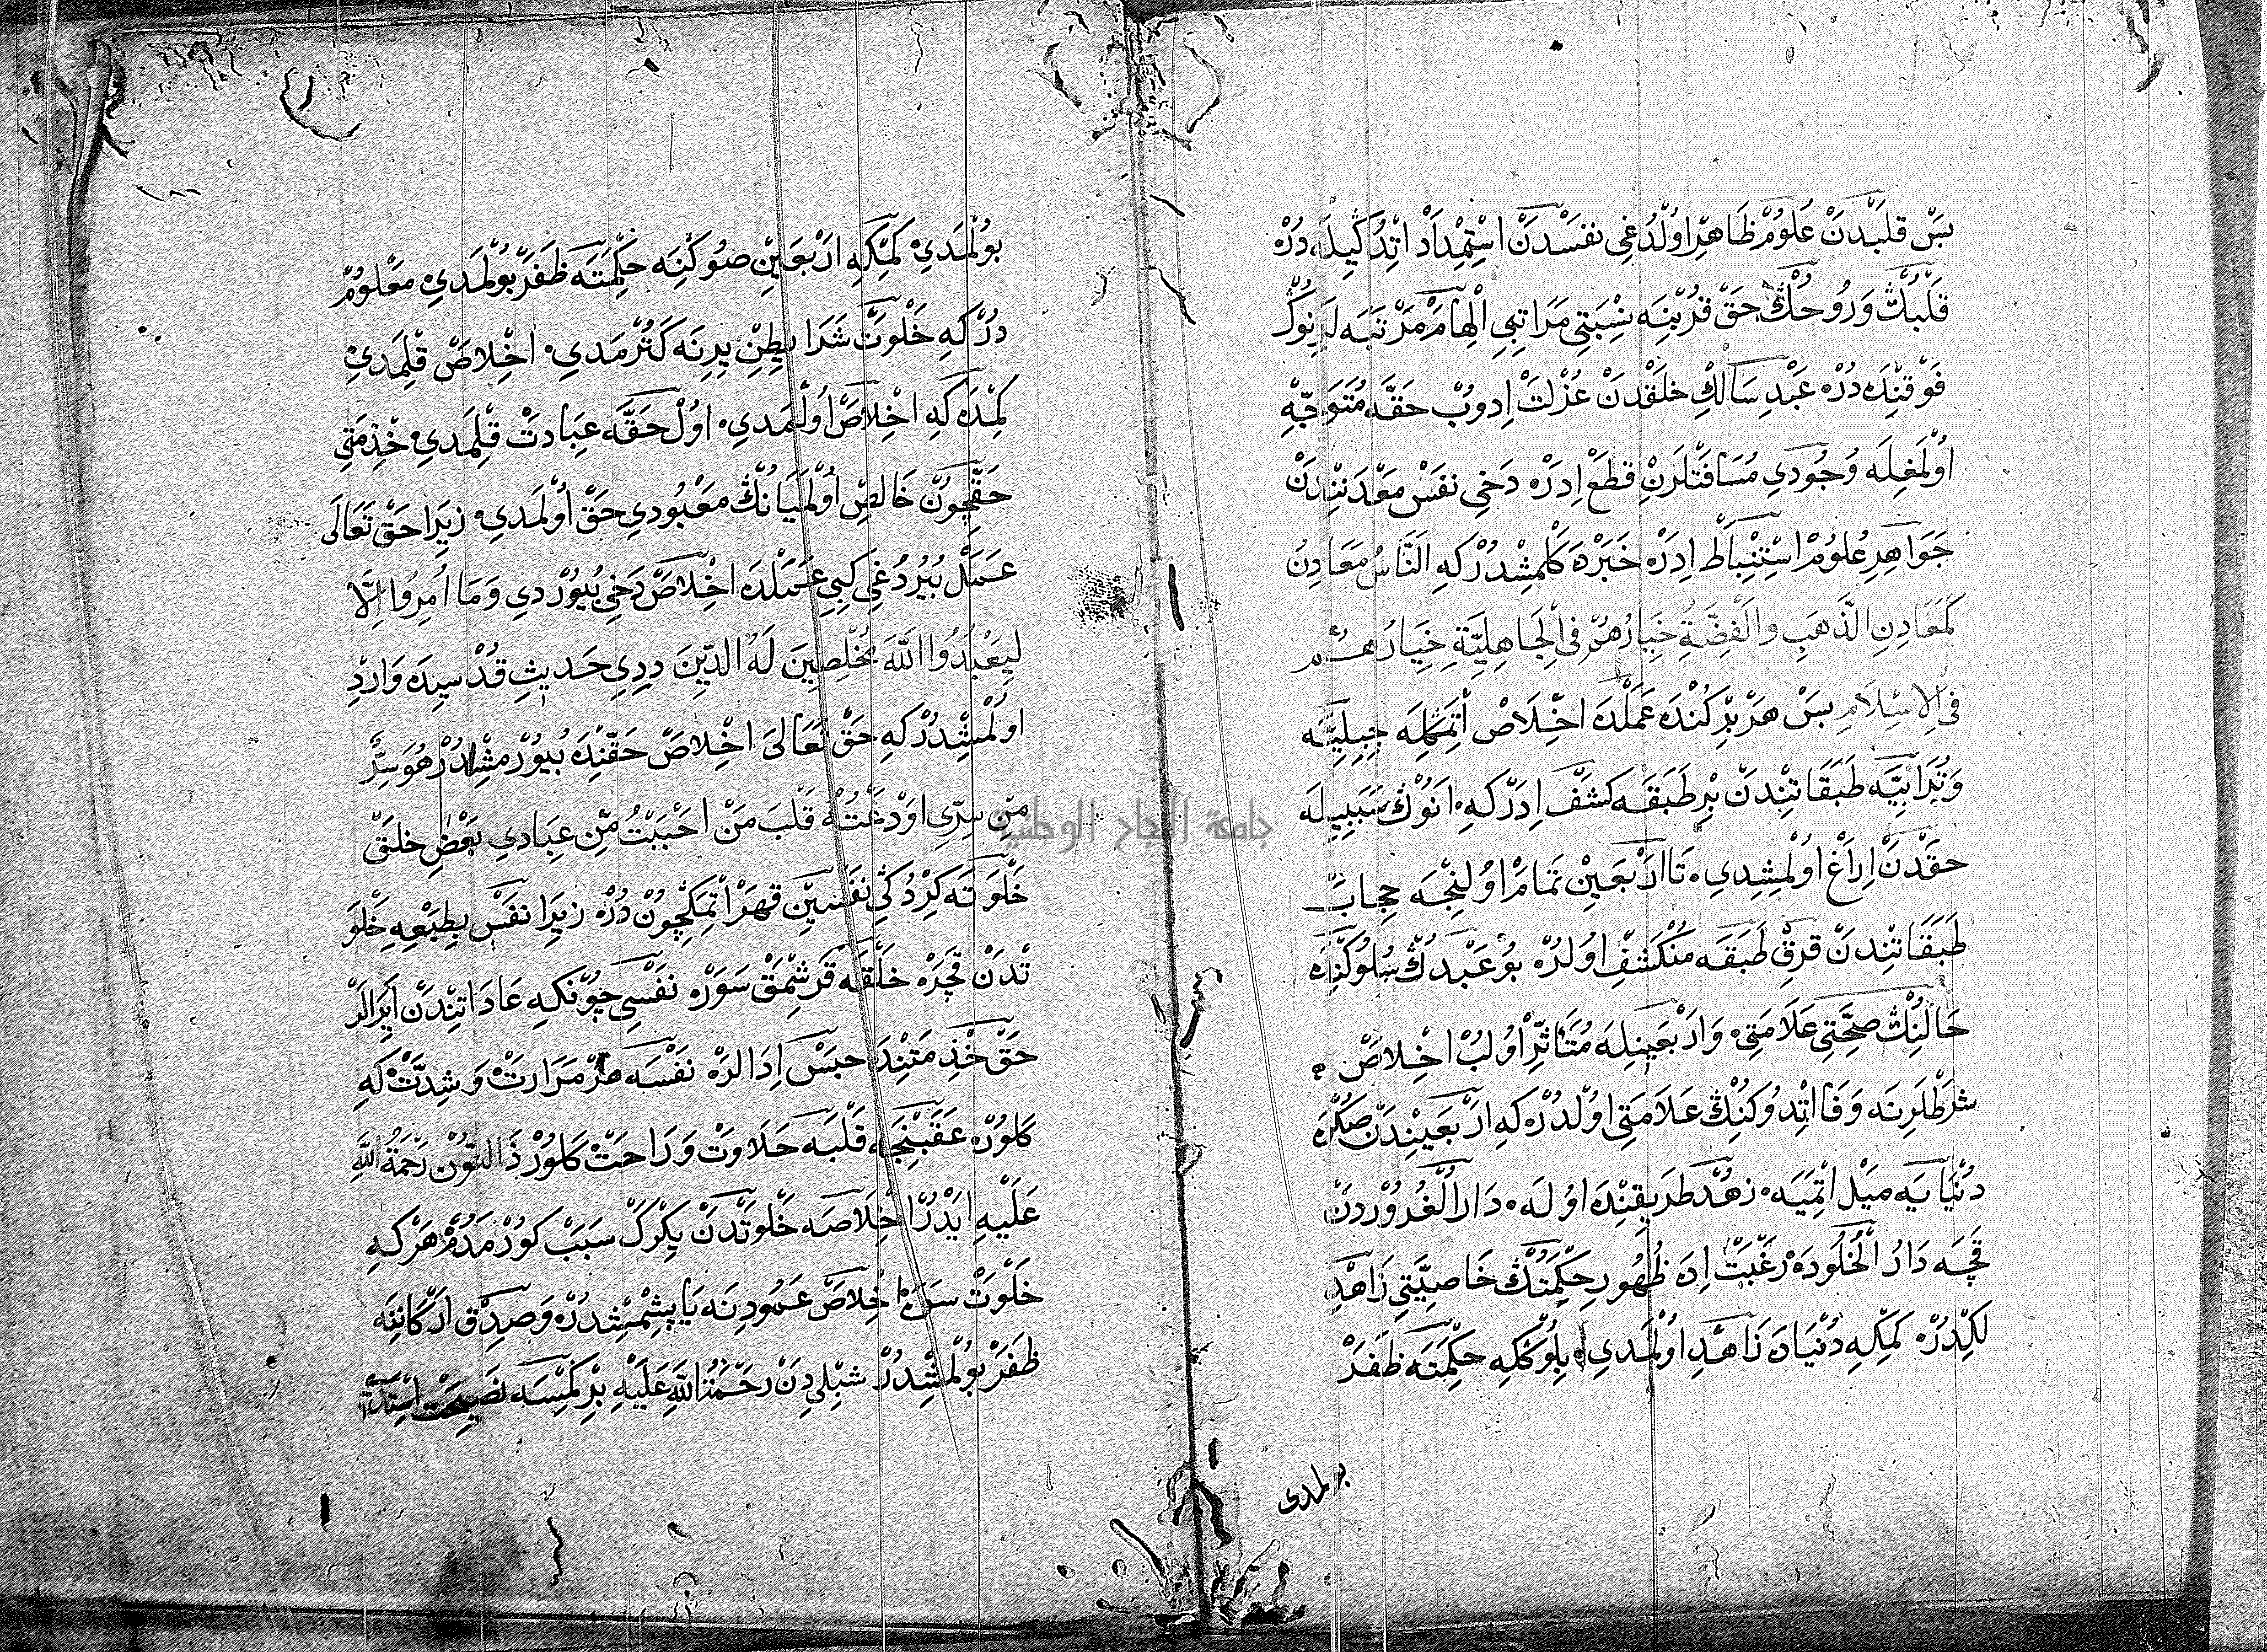 بَسْ قَلبْدَنْ عُلُومْ ظَاهِرْ اوُلْدُغِى نَفَسْدَنْ اسْتِمْدَادْ اتِدُكِيلَه دُرْ
قَلْبُڭْ وَرُوحُڭْ حَقّْ قُرْبِنَه نِسْبَتِى مَرَاتِبِ الْهَامْ مَرْتَبَه لَرِنُوڭْ
فَوْقِنْدَه دُرْ عَبْدِ سَالِكْ خَلقْدَنْ عُزْلَتْ اِدوُبْ حَقَّه مُتَوَجِّهْ
اوُلْمَغِلَه وُجُودِي مُسَافَتْلَرِنْ قَطَعْ اِدَرْ دَخِي نَفَسْ مَعْدَنِنْدَنْ
جَوَاهِرِ عُلُومْ اسْتِنْبَاطْ اِدَرْ خَبَرْدَه كَلْمِشْدُرْكِه اَلنَّاسُ مَعَادِنُ
كَمَعَادِنِ الذَّهَبِ وَالْفِضَّةِ خِيَارُهُمْ فِى الْجَاهِلِيَّةِ خِيَارُهُمْ
فِى الْاِسْلَامِ بَسْ هَرْ بِرْ كُنْدَه عَمَلْدَه اخْلَاصْ اتْمَكِلَه جِبِلِيَّه
وَتُرَابِيَّه طَبَقَاتِنْدَنْ بِرْ طَبَقَه كَشَفْ اِدَرْكِه انُوڭْ سَبَبِيلَه
حَقْدَنْ اِرَاغْ اوُلْمِشِدِي تَا ارْبَعِينْ تَمَامْ اوُلِنْجَه حِجَابْ
طَبَقَاتِنْدَنْ قِرقْ طَبَقَه مُنْكَشِفْ اوُلُرْ بُو عَبْدُڭْ سُلُوكِنْدَه
حَالْنُڭْ صِحَّتِي عَلَامَتِي وَارْبَعِينِلَه مُتَأَثِّرْ اوُلُبْ اخْلَاصْ
شَرطْلَرِنَه وَفَا اتِدُوكِنُڭْ عَلَامَتِي اوُلدُرْكِه ارْبَعِينْدَنْ صُكْرَه
دُنْيَايَه مَيْل اتْمِيَه زُهْد طَرِيقِنْدَه اوُلَه دَارُ الْغُرُوْردَنْ
قَچَه دَارُ الْخُلُودَه رَغْبَتْ اِدَه ظُهُورِ حِكْمَتُڭْ خَاصِيَّتِي زَاهِدْ
لِكِلَدُرْ كِمْكِه دُنْيَادَه زَاهِدْ اوُلْمَدِي بِلُوڭْكِه حِكْمَتَه ظَفَرْ
بولمدى
١٨٨
بوُلْمَدِيْ كِمْكِه ارْبَعِينْ صوُكِنَه حِكْمَتَه ظَفَرْ بوُلْمَدِي مَعْلُومْ
دُرْكِه خَلْوَتْ شَرَايِطِنْ يِرِنَه كَتُرْمَدِي اخْلَاصْ قِلْمَدِي
كِمْدَه كِه اخْلَاصْ اوُلْمَدِي اوُلْ حَقَّه عِبَادَتْ قِلْمَدِي خِذمَتِي
حَقْچُونْ خَالِصْ اوُلْمَيَانُڭْ مَعْبُودِي حَقّْ اوُلْمَدِي زِيرَا حَقّْ تَعَالَى
عَمَلْ بُيُرْدُغِي كِبِي عَمَلْدَه اخْلَاصْ دَخِي بُيُوْردِي وَمَا اُمِرُوا اِلَّا
لِيَعْبُدُوا اللّٰهَ مُخْلِصِينَ لَهُ الدِّينَ دِدِي حَدِيثِ قُدْسِيدَه وَارِدْ
اوُلْمِشْدُرْكِه حَقّْ تَعَالَى اخْلَاصْ حَقِّنْدَه بُيُوْرمِشْدُرْ هُوَ سِرٌّ
مِنْ سِرِّي اوْدَعْتُهُ قَلْبَ مَنْ احْبَبْتُ مِنْ عِبَادِي بَعْضِ خَلقْ
خَلْوَتَه كِرْدُكِي نَفْسِينْ قَهْرْ اتْمَكِچُونْ دُرْ زِيرَا نَفَسْ بِطَبْعِه خَلْوَ
تْدَنْ قَچَرْ خَلْقَه قَرِشْمَقْ سَوَرْ نَفْسِي چُونْكِه عَادَاتِنْدَنْ اَيِرَالَرْ
حَقّْ خِذمَتِنْدَه حَبَسْ اِدَالَرْ نَفْسَه هَرْ مَرَارَتْ وَشِدَّتْ كِه
كَلُورْ عَقَبِنْجَه قَلْبَه حَلَاوَتْ وَرَاحَتْ كَلُورْ ذَا النُّوْنْ رَحْمَةُ اللّٰهِ
عَلَيْهِ ايْدُرْ اخْلَاصَه خَلْوَتْدَنْ يِكْرَكْ سَبَبْ كَورْمَدُمْ هَرْكِه
خَلْوَتْ سَوَرْ اخْلَاصْ عَمُودِنَه يَاپِشْمِشْدُرْ وَصِدْق ارْكَانِنَه
ظَفَرْ بوُلْمِشْدُرْ شِبْلِي دَنْ رَحْمَةُ اللّٰهِ عَلَيْهِ بِرْ كِمْسَه نَصِيحَتْ
جامعة النجاح الوطنية